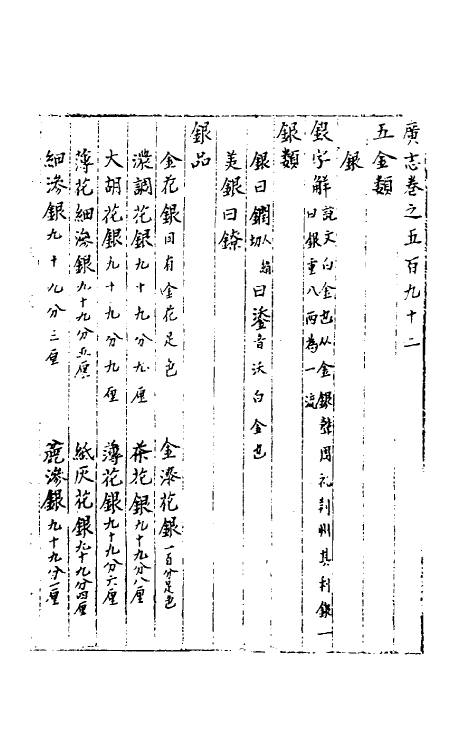 廣志卷之五百九十二
五金類
銀
銀字解 說文白金也从金銀聲周礼荆州其利銀一
曰銀重八两為一流
銀類
銀曰鐗 切 曰鋈音沃白金也
美銀曰鐐
銀品
金花銀面有金花足色 金漆花銀一百分足色
濃調花銀九十九分九厘 茶花銀九十九分八厘
大胡花銀九十九分九厘 薄花銀九十九分六厘
薄花細滲銀九十九分五厘 紙灰花銀九十九分四厘
細滲銀九十九分三厘 麄滲銀九十九分一厘